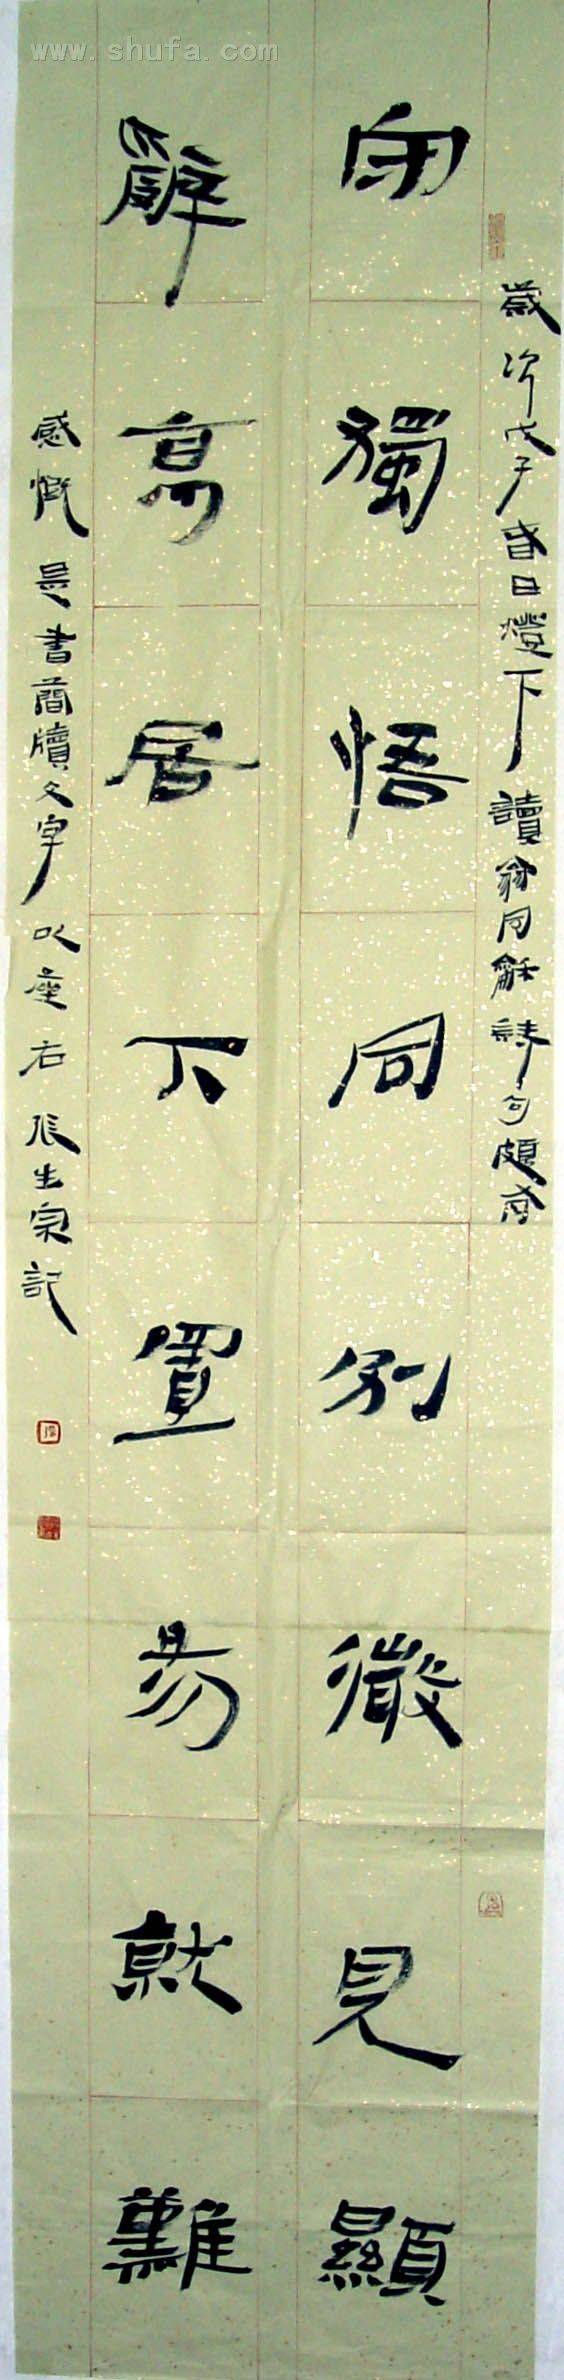 www.shufa.com
歲次戊子春日燈下讀翁同龢詩句頗有
向獨悟同別微見顯
辭高居下置易就難
感慨是書簡牘文字以座右張生泉記